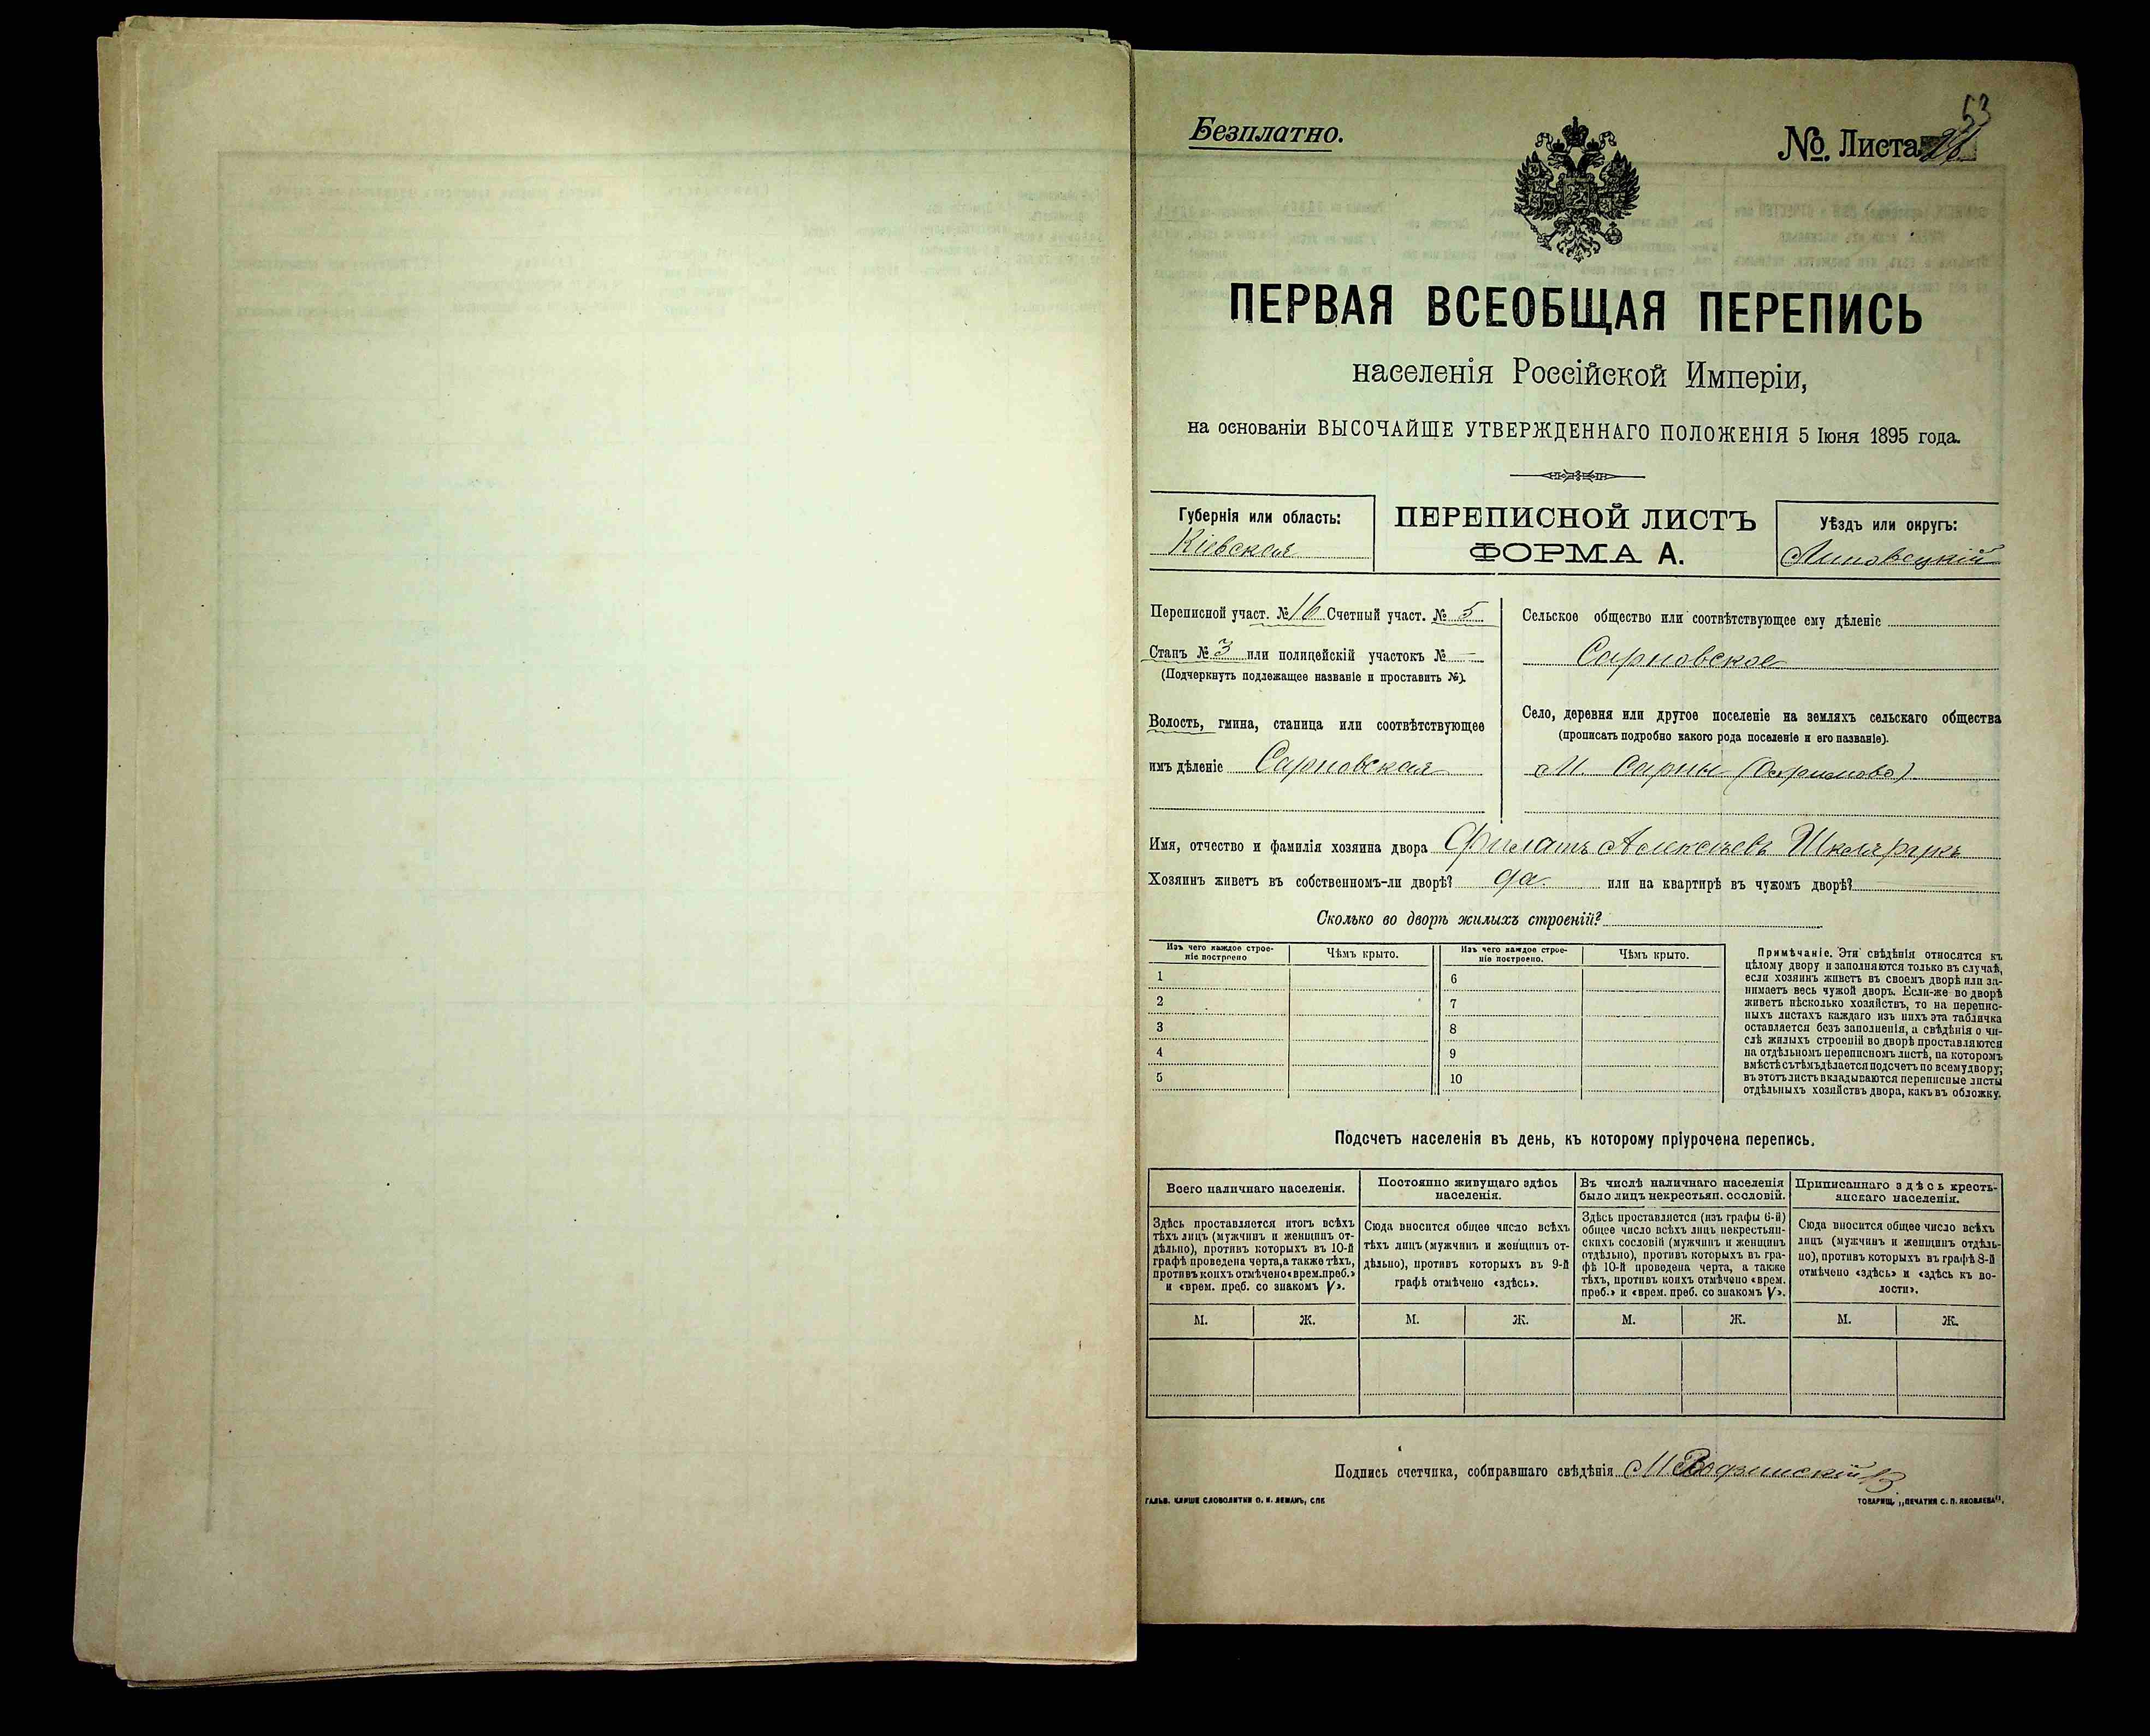 53
Безплатно.
№. Листа
ПЕРВАЯ ВСЕОБЩАЯ ПЕРЕПИСЬ
населенія Россійской Имперіи,
на основаніи ВЫСОЧАЙШЕ УТВЕРЖДЕННАГО ПОЛОЖЕНІЯ 5 Іюня 1895 года.
Губернія или область:
Кіевская
ПЕРЕПИСНОЙ ЛИСТЪ
ФОРМА А.
Уѣздъ или округъ:
Липовецкій
Переписной участ. № 16 Счетный участ. № 5
Станъ № 3 или полицейскій участокъ № —
(Подчеркнуть подлежащее названіе и проставить №).
Волость, гмина, станица или соотвѣтствующее
имъ дѣленіе Сарновская
Сельское общество или соотвѣтствующее ему дѣленіе
Сарновское
Село, деревня или другое поселеніе на земляхъ сельскаго общества
(прописать подробно какого рода поселеніе и его названіе).
М. Сарны (Охримово)
Имя, отчество и фамилія хозяина двора Филатъ Алексѣевъ Шклярукъ
Хозяинъ живетъ въ собственномъ-ли дворѣ? да. или на квартирѣ въ чужомъ дворѣ?
Сколько во дворѣ жилыхъ строеній?
Изъ чего каждое строе-
ніе построено
Чѣмъ крыто.
Изъ чего каждое строе-
ніе построено.
Чѣмъ крыто.
1
6
2
7
3
8
4
9
5
10
Примѣчаніе. Эти свѣдѣнія относятся къ
цѣлому двору и заполняются только въ случаѣ,
если хозяинъ живетъ въ своемъ дворѣ или за-
нимаетъ весь чужой дворъ. Если-же во дворѣ
живетъ нѣсколько хозяйствъ, то на перепис-
ныхъ листахъ каждаго изъ нихъ эта табличка
оставляется безъ заполненія, а свѣдѣнія о чи-
слѣ жилыхъ строеній во дворѣ проставляются
на отдѣльномъ переписномъ листѣ, на которомъ
вмѣстѣ съ тѣмъ дѣлается подсчетъ по всему двору;
въ этотъ листъ вкладываются переписные листы
отдѣльныхъ хозяйствъ двора, какъ въ обложку.
Подсчетъ населенія въ день, къ которому пріурочена перепись.
Всего наличнаго населенія.
Здѣсь проставляется итогъ всѣхъ
тѣхъ лицъ (мужчинъ и женщинъ от-
дѣльно), противъ которыхъ въ 10-й
графѣ проведена черта, а также тѣхъ,
противъ коихъ отмѣчено «врем. преб.»
и «врем. преб. со знакомъ V».
Постоянно живущаго здѣсь
населенія.
Сюда вносится общее число всѣхъ
тѣхъ лицъ (мужчинъ и женщинъ от-
дѣльно), противъ которыхъ въ 9-й
графѣ отмѣчено «здѣсь».
Въ числѣ наличнаго населенія
было лицъ некрестьян. сословій.
Здѣсь проставляется (изъ графы 6-й)
общее число всѣхъ лицъ некрестьян-
скихъ сословій (мужчинъ и женщинъ
отдѣльно), противъ которыхъ въ гра-
фѣ 10-й проведена черта, а также
тѣхъ, противъ коихъ отмѣчено «врем.
преб.» и «врем. преб. со знакомъ V».
Приписаннаго здѣсь кресть-
янскаго населенія.
Сюда вносится общее число всѣхъ
лицъ (мужчинъ и женщинъ отдѣль-
но), противъ которыхъ въ графѣ 8-й
отмѣчено «здѣсь» и «здѣсь къ во-
лости».
М. Ж. М. Ж. М. Ж. М. Ж.
Подпись счетчика, собиравшаго свѣдѣнія М
ГАЛЬВ. КЛИШЕ СЛОВОЛИТНИ О. И. ЛЕМАНЪ, СПБ
ТОВАРИЩ. „ПЕЧАТНЯ С. П. ЯКОВЛЕВА".